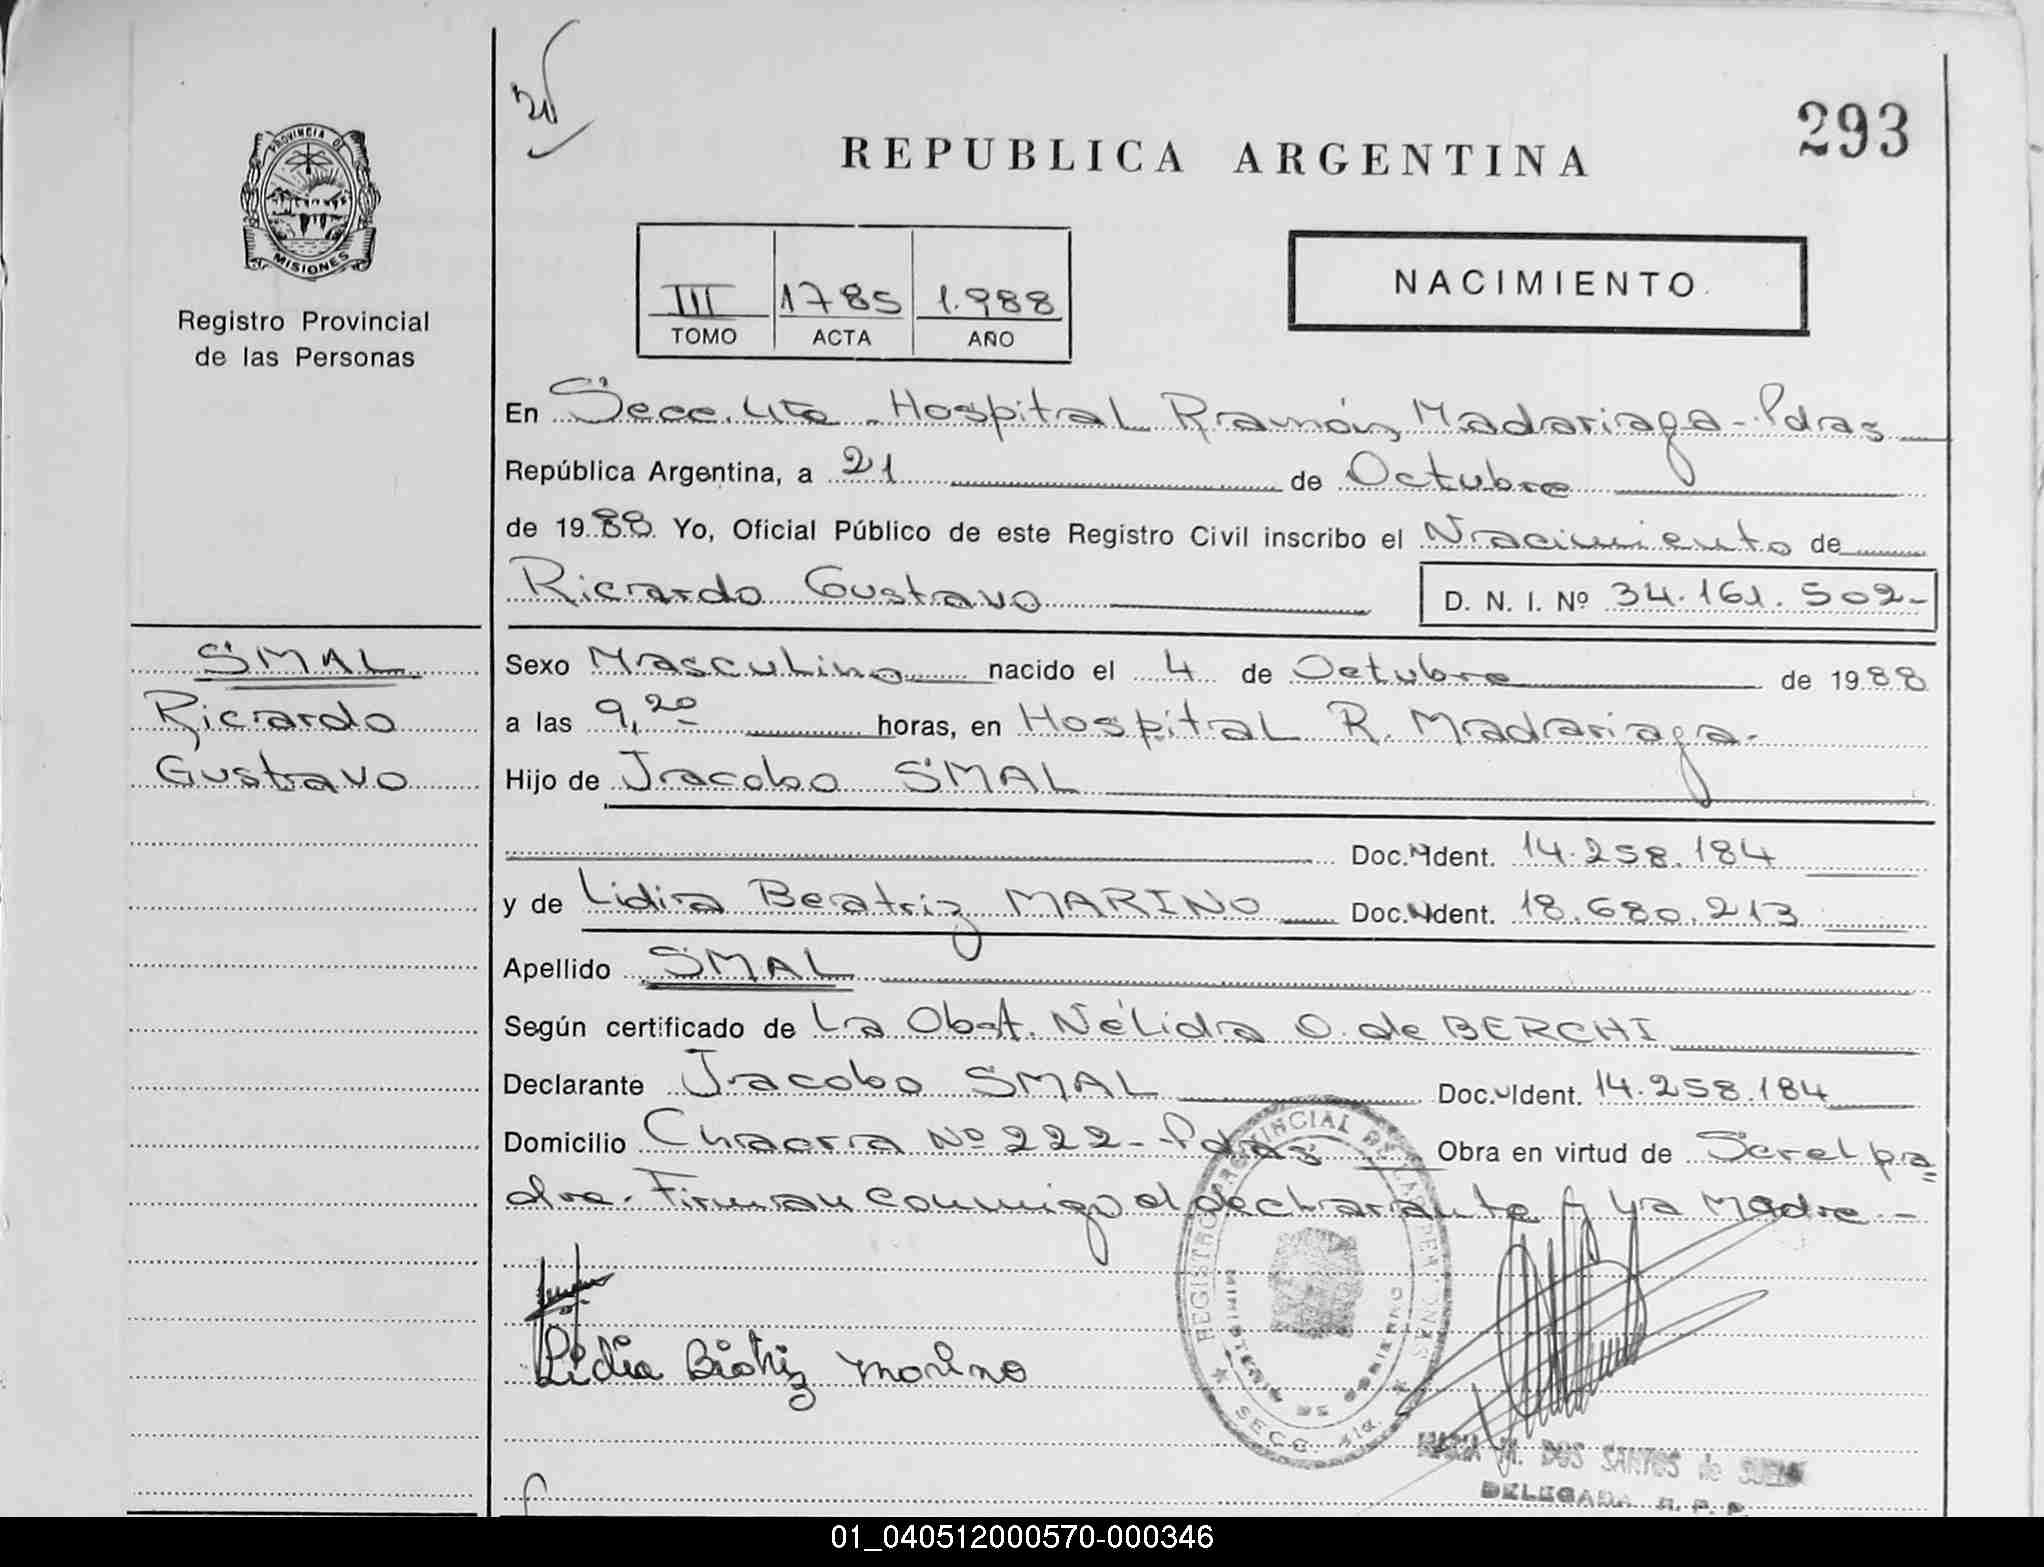 293
REPUBLICA ARGENTINA
PROVINCIA DE
MISIONES
Registro Provincial
de las Personas
NACIMIENTO
III 1785 1.988
TOMO ACTA AÑO
En Secc. 4ta - Hospital Ramón Madariaga - Pdas
República Argentina, a 21 de Octubre
de 1988 Yo, Oficial Público de este Registro Civil inscribo el Nacimiento de
Ricardo Gustavo D. N. I. Nº 34.161.502-
SMAL
Ricardo
Gustavo
Sexo Masculino nacido el 4 de Octubre de 1988
a las 9,20 horas, en Hospital R. Madariaga-
Hijo de Jacobo SMAL
Doc. Ident. 14.258.184
y de Lidia Beatriz MARINO Doc. Ident. 18.680.213
Apellido SMAL
Según certificado de La Obst. Nélida O. de BERCHI
Declarante Jacobo SMAL Doc. Ident. 14.258.184
Domicilio Chacra Nº 222 - Pdas Obra en virtud de Ser el pa=
dre. Firman conmigo el declarante y la Madre -
REGISTRO PROVINCIAL DE LAS PERSONAS
MINISTERIO DE GOBIERNO
SECC. 4ta.
Lidia Biatriz Marino
MARIA M. DOS SANTOS de
DELEGADA R. P. P.
01_040512000570-000346